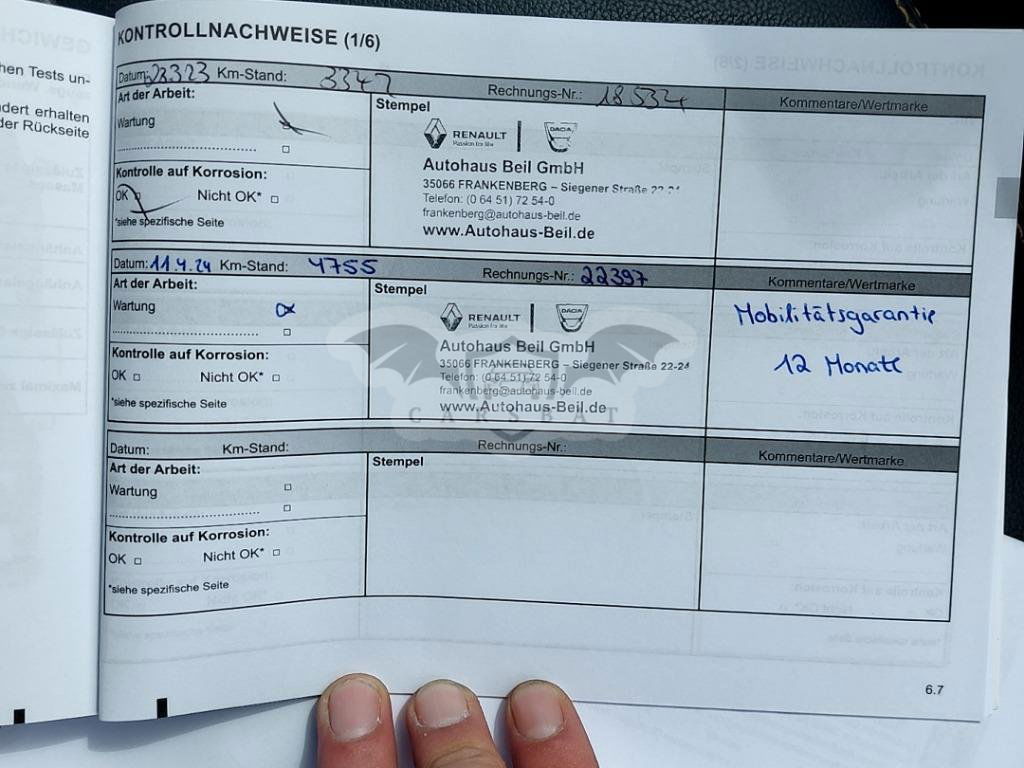 hen Tests un-
dert erhalten
der Rückseite
KONTROLLNACHWEISE (1/6)
Datum: 28.3.23 Km-Stand: 3347 Rechnungs-Nr.: 18534 Kommentare/Wertmarke
Art der Arbeit:
Stempel
Wartung
RENAULT DACIA
Passion for life
Autohaus Beil GmbH
Kontrolle auf Korrosion:
35066 FRANKENBERG – Siegener Straße 22-24
OK Nicht OK*
Telefon: (0 64 51) 72 54-0
frankenberg@autohaus-beil.de
*siehe spezifische Seite
www.Autohaus-Beil.de
Datum: 11.4.24 Km-Stand: 4755 Rechnungs-Nr.: 22397 Kommentare/Wertmarke
Art der Arbeit:
Stempel
Wartung
RENAULT DACIA
Passion for life
Mobilitätsgarantie
Autohaus Beil GmbH
Kontrolle auf Korrosion:
35066 FRANKENBERG – Siegener Straße 22-24
12 Monate
OK Nicht OK*
Telefon: (0 64 51) 72 54-0
frankenberg@autohaus-beil.de
*siehe spezifische Seite
www.Autohaus-Beil.de
CARSBAT
Datum: Km-Stand: Rechnungs-Nr.: Kommentare/Wertmarke
Art der Arbeit:
Stempel
Wartung
Kontrolle auf Korrosion:
OK Nicht OK*
*siehe spezifische Seite
6.7